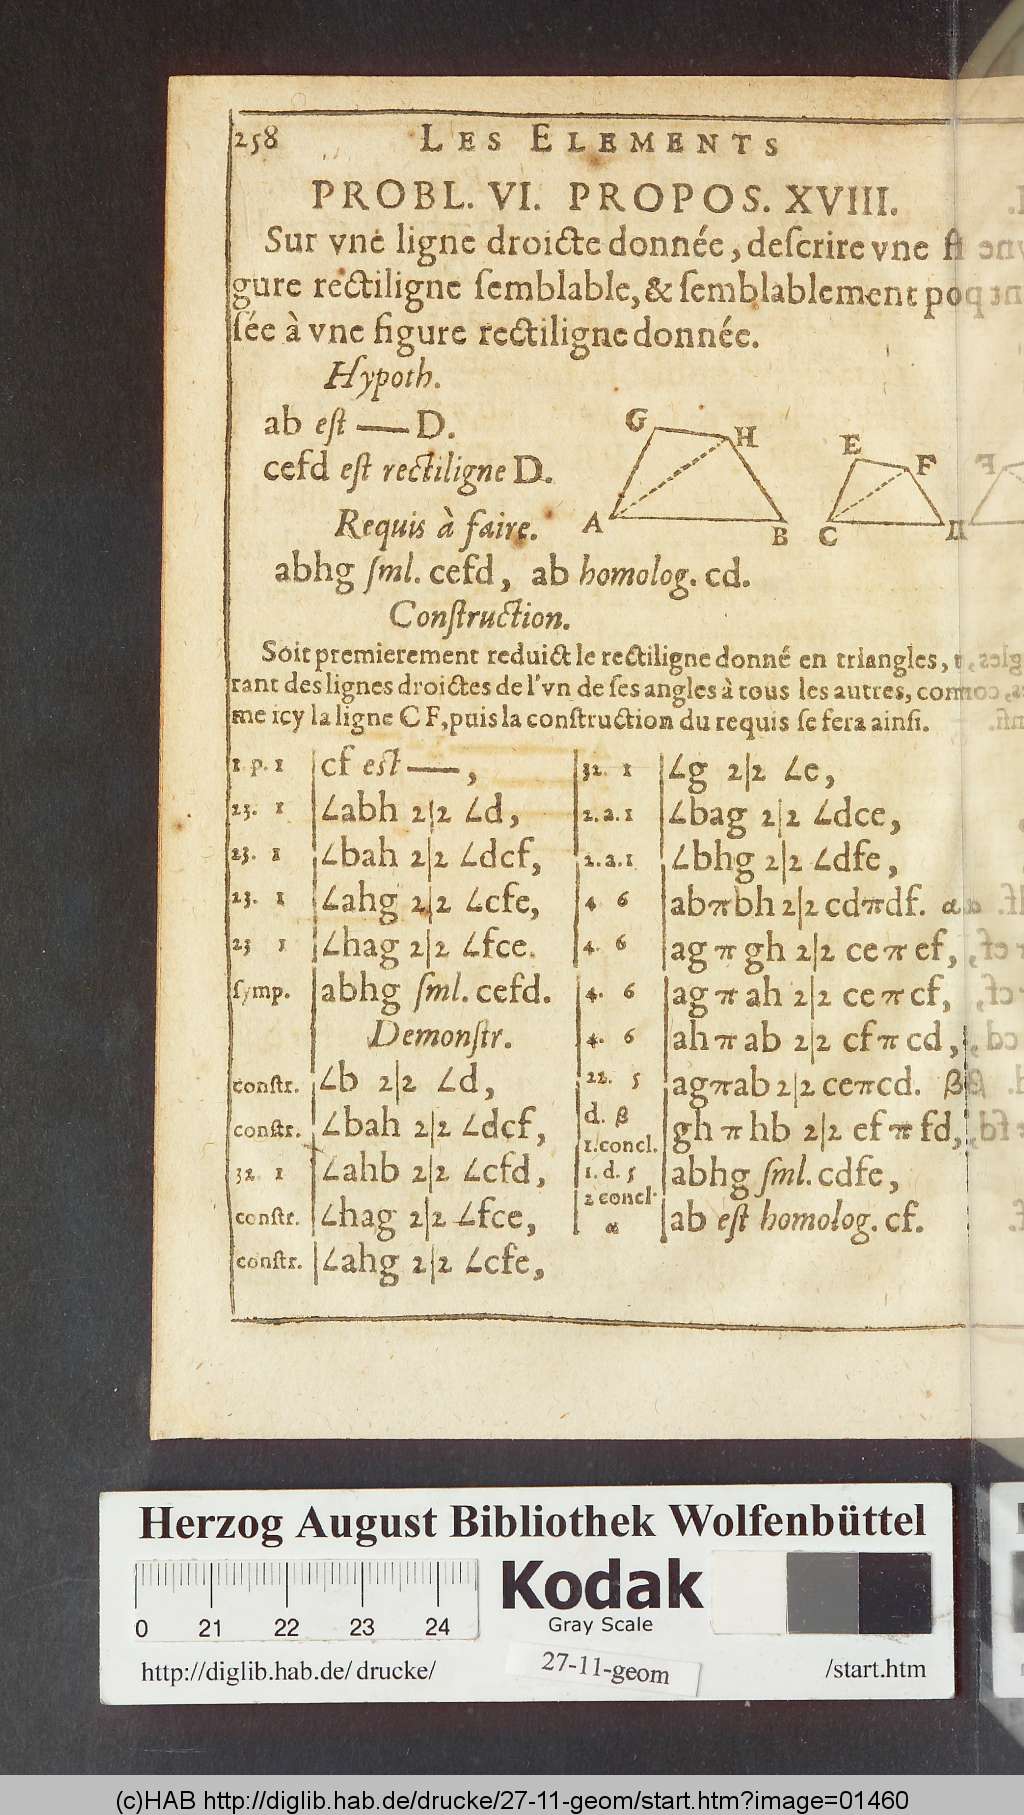 258 LES ELEMENTS
PROBL. VI. PROPOS. XVIII.
Sur vne ligne droicte donnée, deſcrire vne fi
gure rectiligne ſemblable, & ſemblablement po
ſée à vne figure rectiligne donnée.
Hypoth.
ab eſt — D.
cefd eſt rectiligne D.
Requis à faire.
G H A B
E F C D
abhg ſml. cefd, ab homolog. cd.
Conſtruction.
Soit premierement reduict le rectiligne donné en triangles, t
rant des lignes droictes de l'vn de ſes angles à tous les autres, com
me icy la ligne C F, puis la conſtruction du requis ſe fera ainſi.
1. p. 1 | cf eſt —,
23. 1 | ∠abh 2|2 ∠d,
23. 1 | ∠bah 2|2 ∠dcf,
23. 1 | ∠ahg 2|2 ∠cfe,
23 1 | ∠hag 2|2 ∠fce.
ſymp. | abhg ſml. cefd.
Demonſtr.
conſtr. | ∠b 2|2 ∠d,
conſtr. | ∠bah 2|2 ∠dcf,
32 1 | ∠ahb 2|2 ∠cfd,
conſtr. | ∠hag 2|2 ∠fce,
conſtr. | ∠ahg 2|2 ∠cfe,
32. 1 | ∠g 2|2 ∠e,
2.a.1 | ∠bag 2|2 ∠dce,
2.a.1 | ∠bhg 2|2 ∠dfe,
4 6 | abπbh 2|2 cdπdf. α
4. 6 | ag π gh 2|2 ce π ef,
4. 6 | ag π ah 2|2 ce π cf,
4. 6 | ah π ab 2|2 cf π cd,
22. 5 | agπab 2|2 ceπcd. β
d. β
1.concl. | gh π hb 2|2 ef π fd,
1. d. 5 | abhg ſml. cdfe,
2 concl.
α | ab eſt homolog. cf.
Herzog August Bibliothek Wolfenbüttel
0 21 22 23 24
Kodak
Gray Scale
http://diglib.hab.de/ drucke/ 27-11-geom /start.htm
(c)HAB http://diglib.hab.de/drucke/27-11-geom/start.htm?image=01460